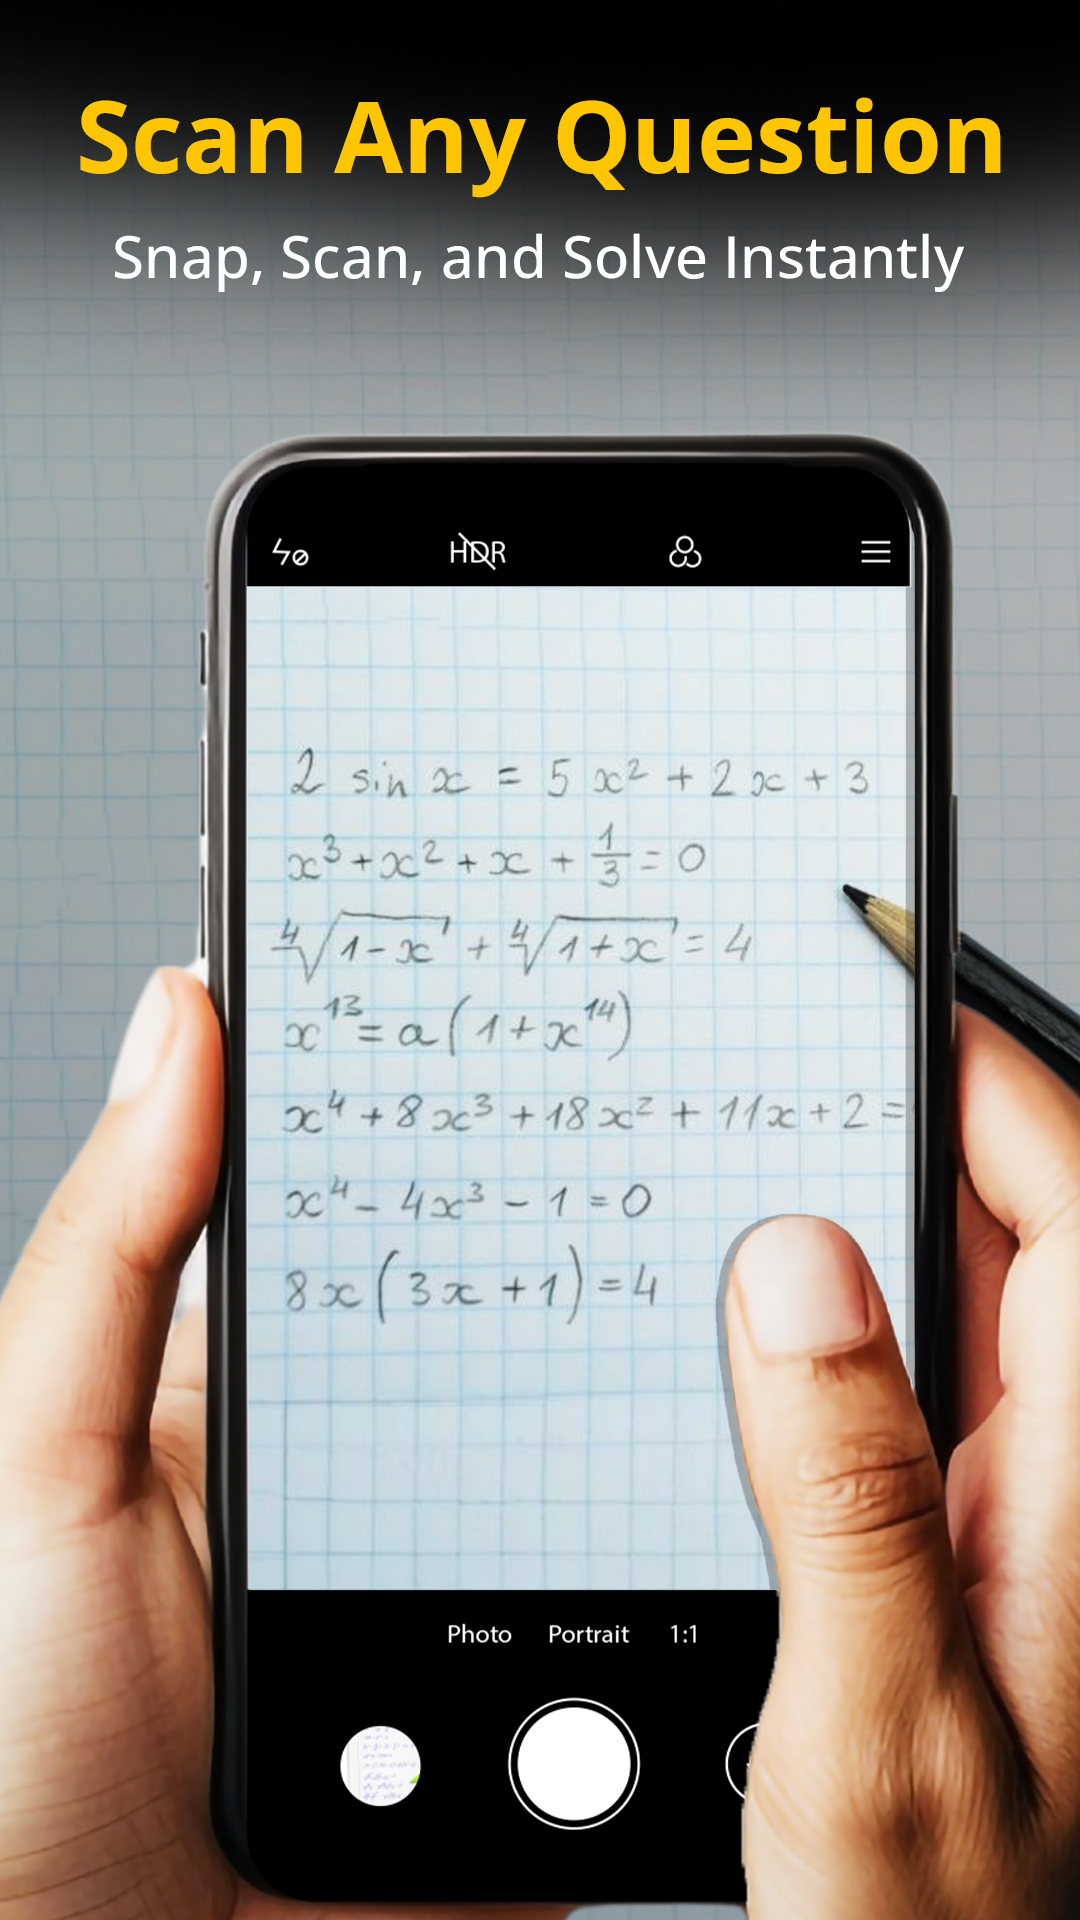 Scan Any Question
Snap, Scan, and Solve Instantly
HDR
2 sin x = 5 x² + 2x + 3
x³ + x² + x + 1/3 = 0
⁴√(1-x) + ⁴√(1+x) = 4
x¹³ = a(1 + x¹⁴)
x⁴ + 8x³ + 18x² + 11x + 2 =
x⁴ - 4x³ - 1 = 0
8x(3x + 1) = 4
Photo Portrait 1:1